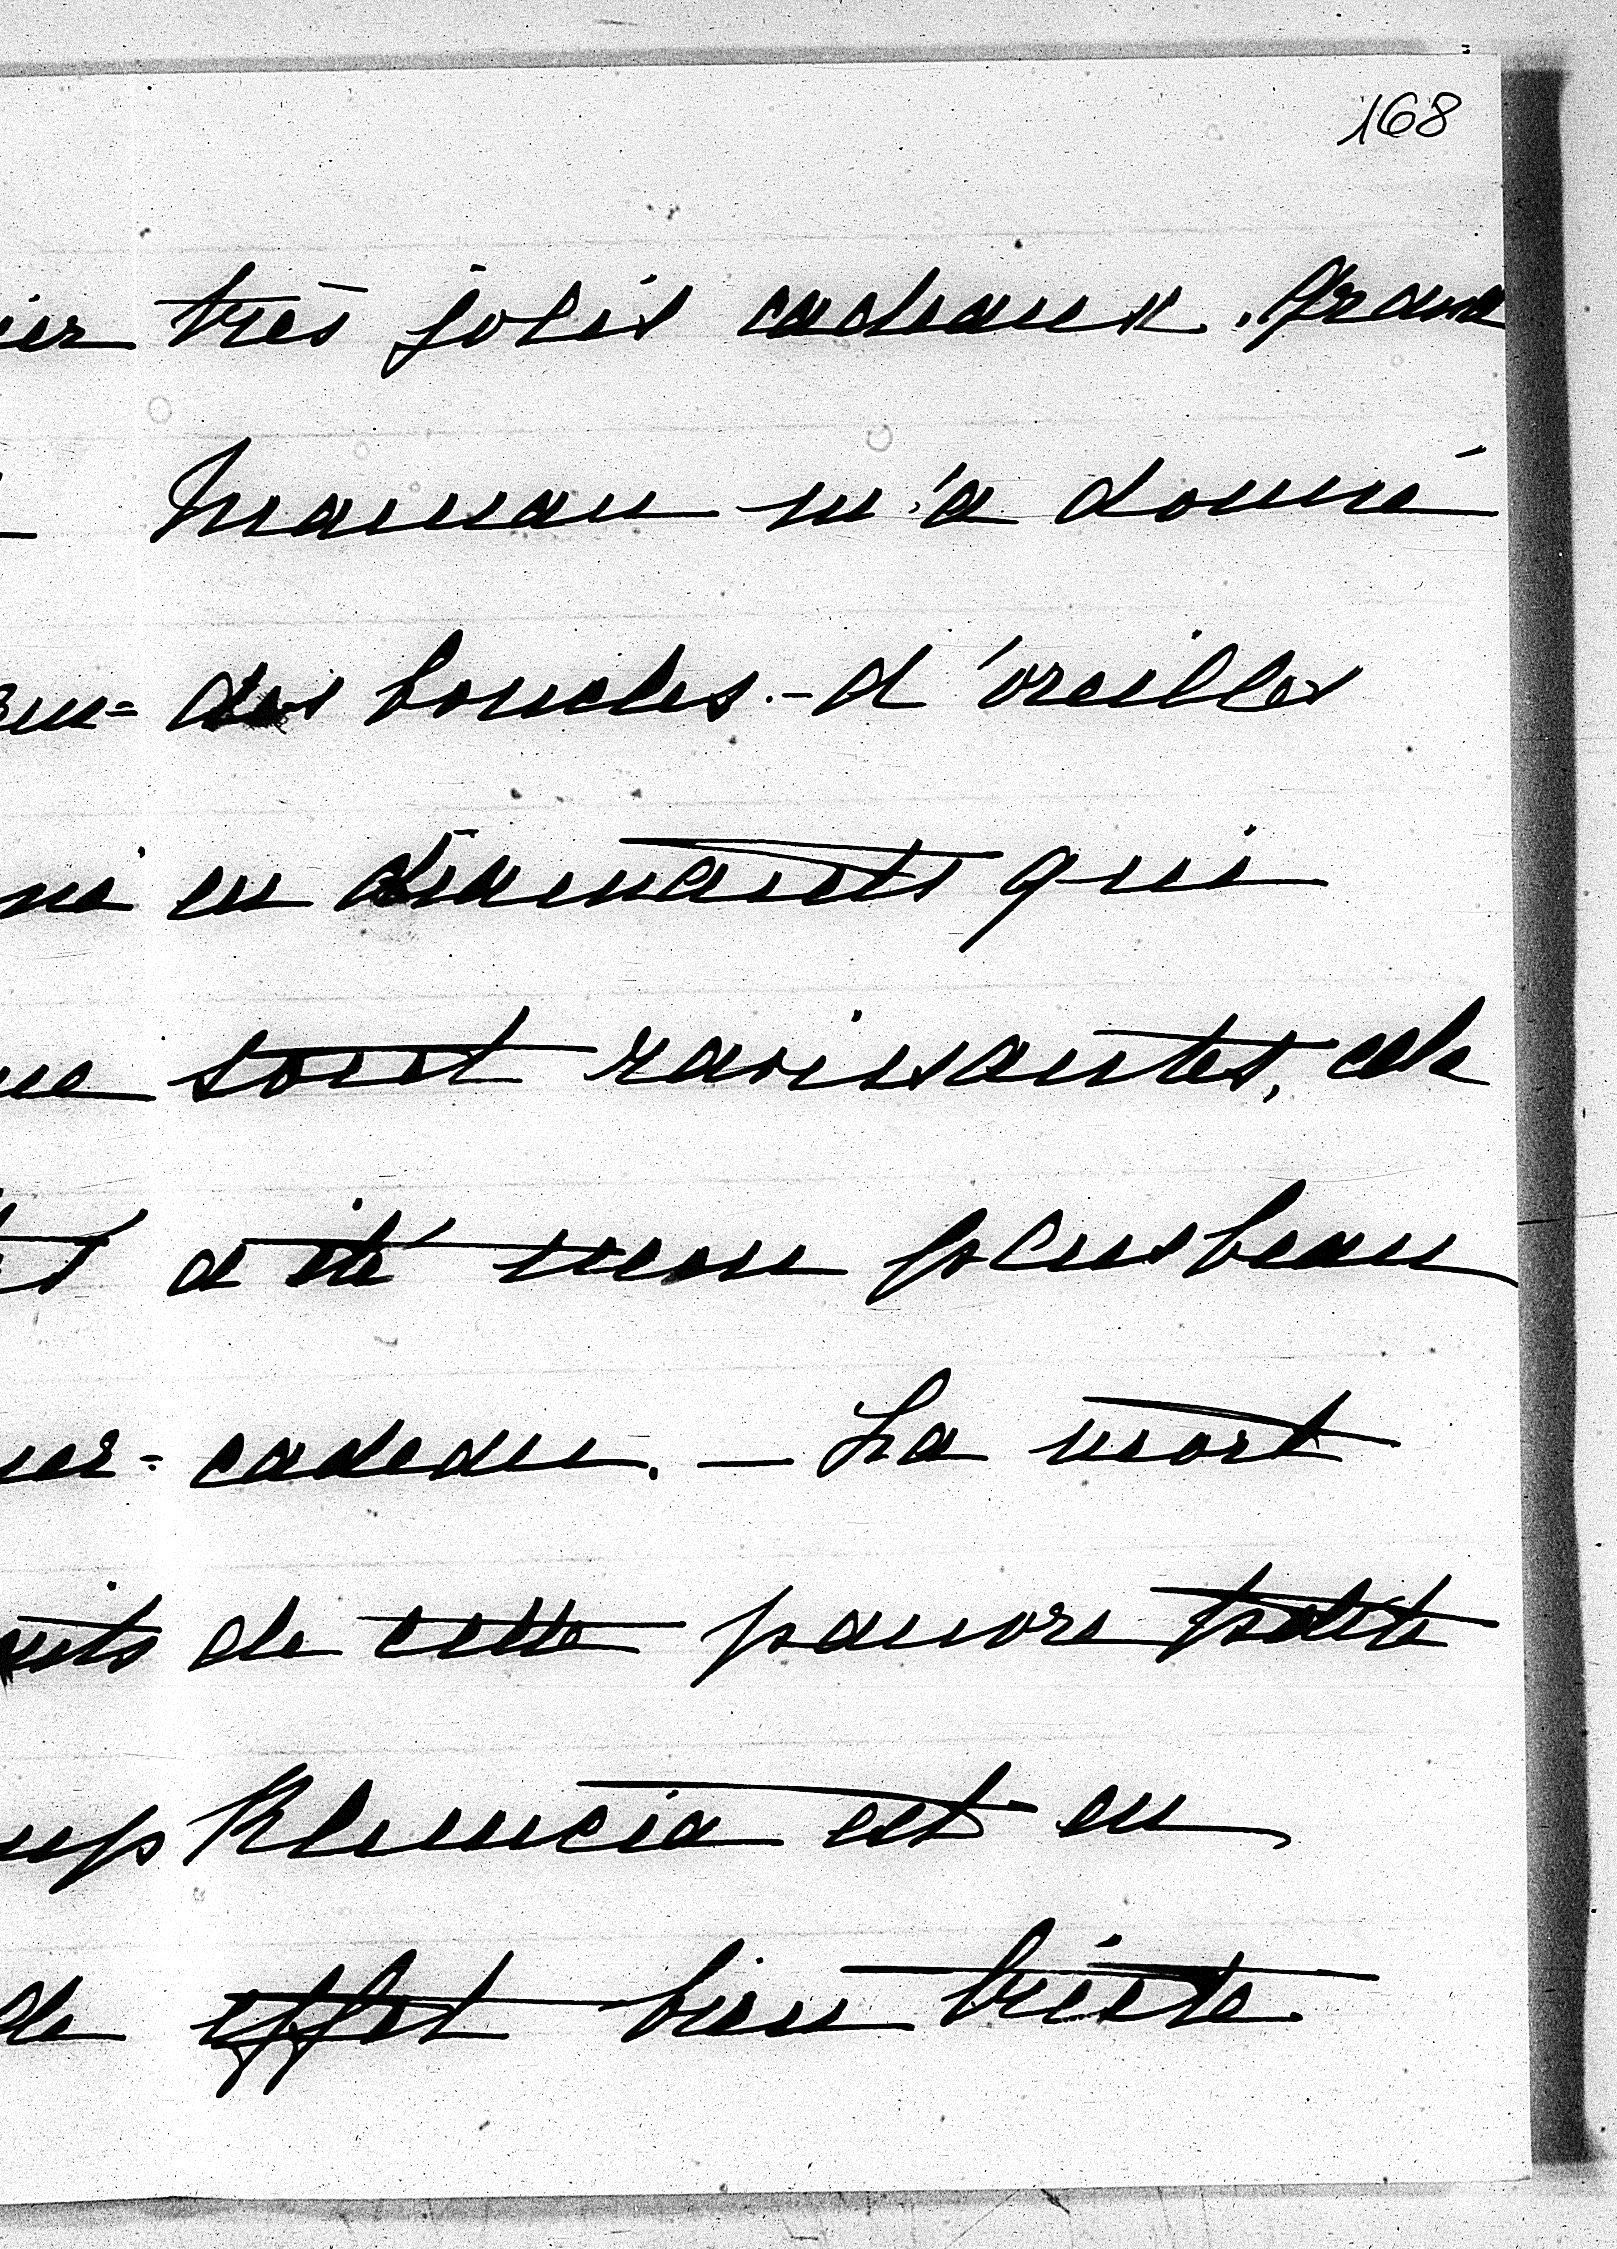 168
très jolis cadeaux. Grand
Maman m'a donné
des boucles-d'oreilles
en diamants qui
sont ravissantes, cela
a été mon plus beau
cadeau. — La mort
de cette pauvre petite
est en
effet bien triste